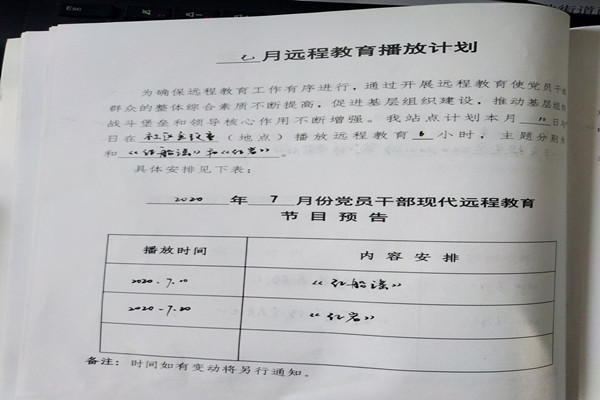 Esc
七 月远程教育播放计划
为确保远程教育工作有序进行，通过开展远程教育使党员干
群众的整体综合素质不断提高，促进基层组织建设，推动基层组
战斗堡垒和领导核心作用不断增强。我站点计划本月 日
日在 社区会议室 （地点）播放远程教育 6 小时，主题分别
和 《红船谣》和《红岩》 。
具体安排见下表：
2020 年 7 月份党员干部现代远程教育
节目预告
播放时间 内容安排
2020.7.10 《红船谣》
2020.7.20 《红岩》
备注：时间如有变动将另行通知。